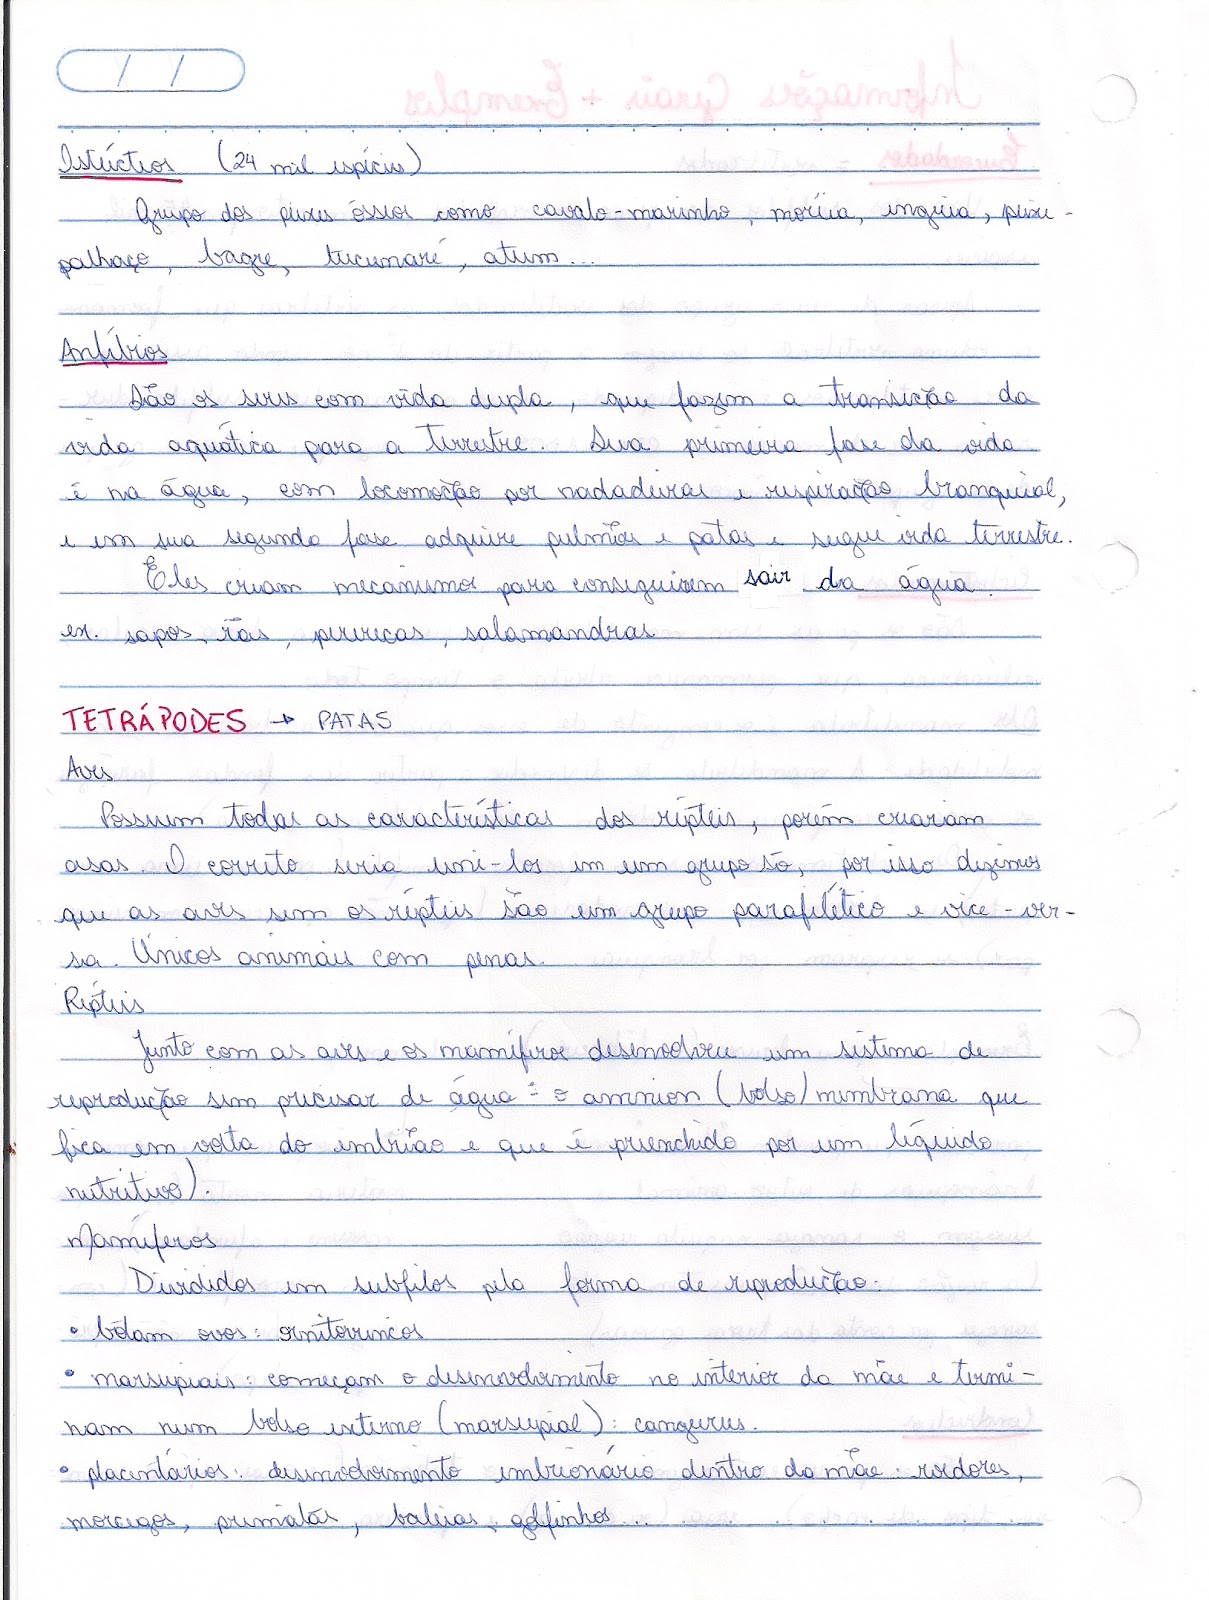 Ostíctios (24 mil espécies)
Grupo dos peixes ósseos como cavalo-marinho, moréia, enguia, peixe-
palhaço, bagre, tucunaré, atum...
Anfíbios
São os seres com vida dupla, que fazem a transição da
vida aquática para a terrestre. Sua primeira fase da vida
é na água, com locomoção por nadadeiras e respiração branquial,
e em sua segunda fase adquire pulmões e patas e segue vida terrestre.
Eles criam mecanismos para conseguirem sair da água.
ex. sapos, rãs, pererecas, salamandras
TETRÁPODES → PATAS
Aves
Possuem todas as características dos répteis, porém criaram
asas. O correto seria uni-los em um grupo só, por isso dizemos
que as aves sem os répteis são um grupo parafilético e vice-ver-
sa. Únicos animais com penas.
Répteis
Junto com as aves e os mamíferos desenvolveu um sistema de
reprodução sem precisar de água: o amnion (bolsa/membrana que
fica em volta do embrião e que é preenchido por um líquido
nutritivo).
Mamíferos
Divididos em subfilos pela forma de reprodução:
• bótam ovos: ornitorrincos
• marsupiais: começam o desenvolvimento no interior da mãe e termi-
nam num bolso externo (marsupial): cangurus.
• placentários: desenvolvimento embrionário dentro da mãe: roedores,
morcegos, primatas, baleias, golfinhos...